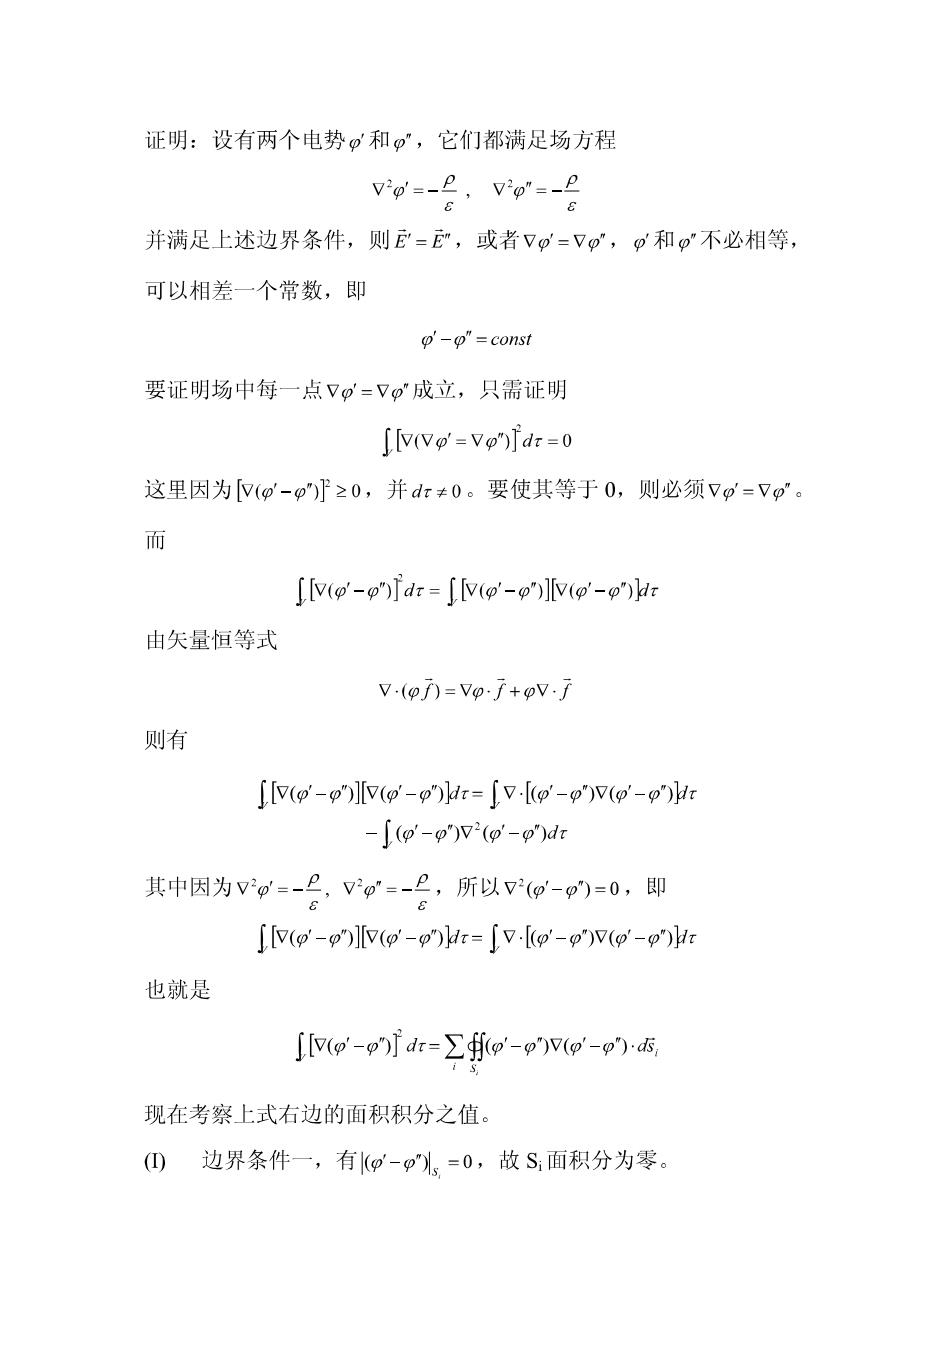 证明：设有两个电势φ′和φ″，它们都满足场方程
∇²φ′ = −ρ/ε ,  ∇²φ″ = −ρ/ε
并满足上述边界条件，则E⃗′ = E⃗″，或者∇φ′ = ∇φ″，φ′和φ″不必相等，
可以相差一个常数，即
φ′ − φ″ = const
要证明场中每一点∇φ′ = ∇φ″成立，只需证明
∫_V [∇(∇φ′ = ∇φ″)]² dτ = 0
这里因为[∇(φ′ − φ″)]² ≥ 0，并dτ ≠ 0。要使其等于 0，则必须∇φ′ = ∇φ″。
而
∫_V [∇(φ′ − φ″)]² dτ = ∫_V [∇(φ′ − φ″)][∇(φ′ − φ″)]dτ
由矢量恒等式
∇·(φf⃗) = ∇φ·f⃗ + φ∇·f⃗
则有
∫_V [∇(φ′ − φ″)][∇(φ′ − φ″)]dτ = ∫_V ∇·[(φ′ − φ″)∇(φ′ − φ″)]dτ
− ∫_V (φ′ − φ″)∇²(φ′ − φ″)dτ
其中因为∇²φ′ = −ρ/ε, ∇²φ″ = −ρ/ε，所以∇²(φ′ − φ″) = 0，即
∫_V [∇(φ′ − φ″)][∇(φ′ − φ″)]dτ = ∫_V ∇·[(φ′ − φ″)∇(φ′ − φ″)]dτ
也就是
∫_V [∇(φ′ − φ″)]² dτ = ∑_i ∯_{S_i} (φ′ − φ″)∇(φ′ − φ″)·ds⃗_i
现在考察上式右边的面积积分之值。
(I) 边界条件一，有|(φ′ − φ″)|_{S_i} = 0，故 S_i 面积分为零。